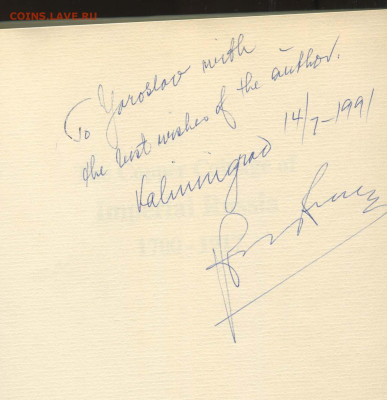 COINS.LAVE.RU
To Yaroslav with
the best wishes of the author.
Kaliningrad 14/7-1991